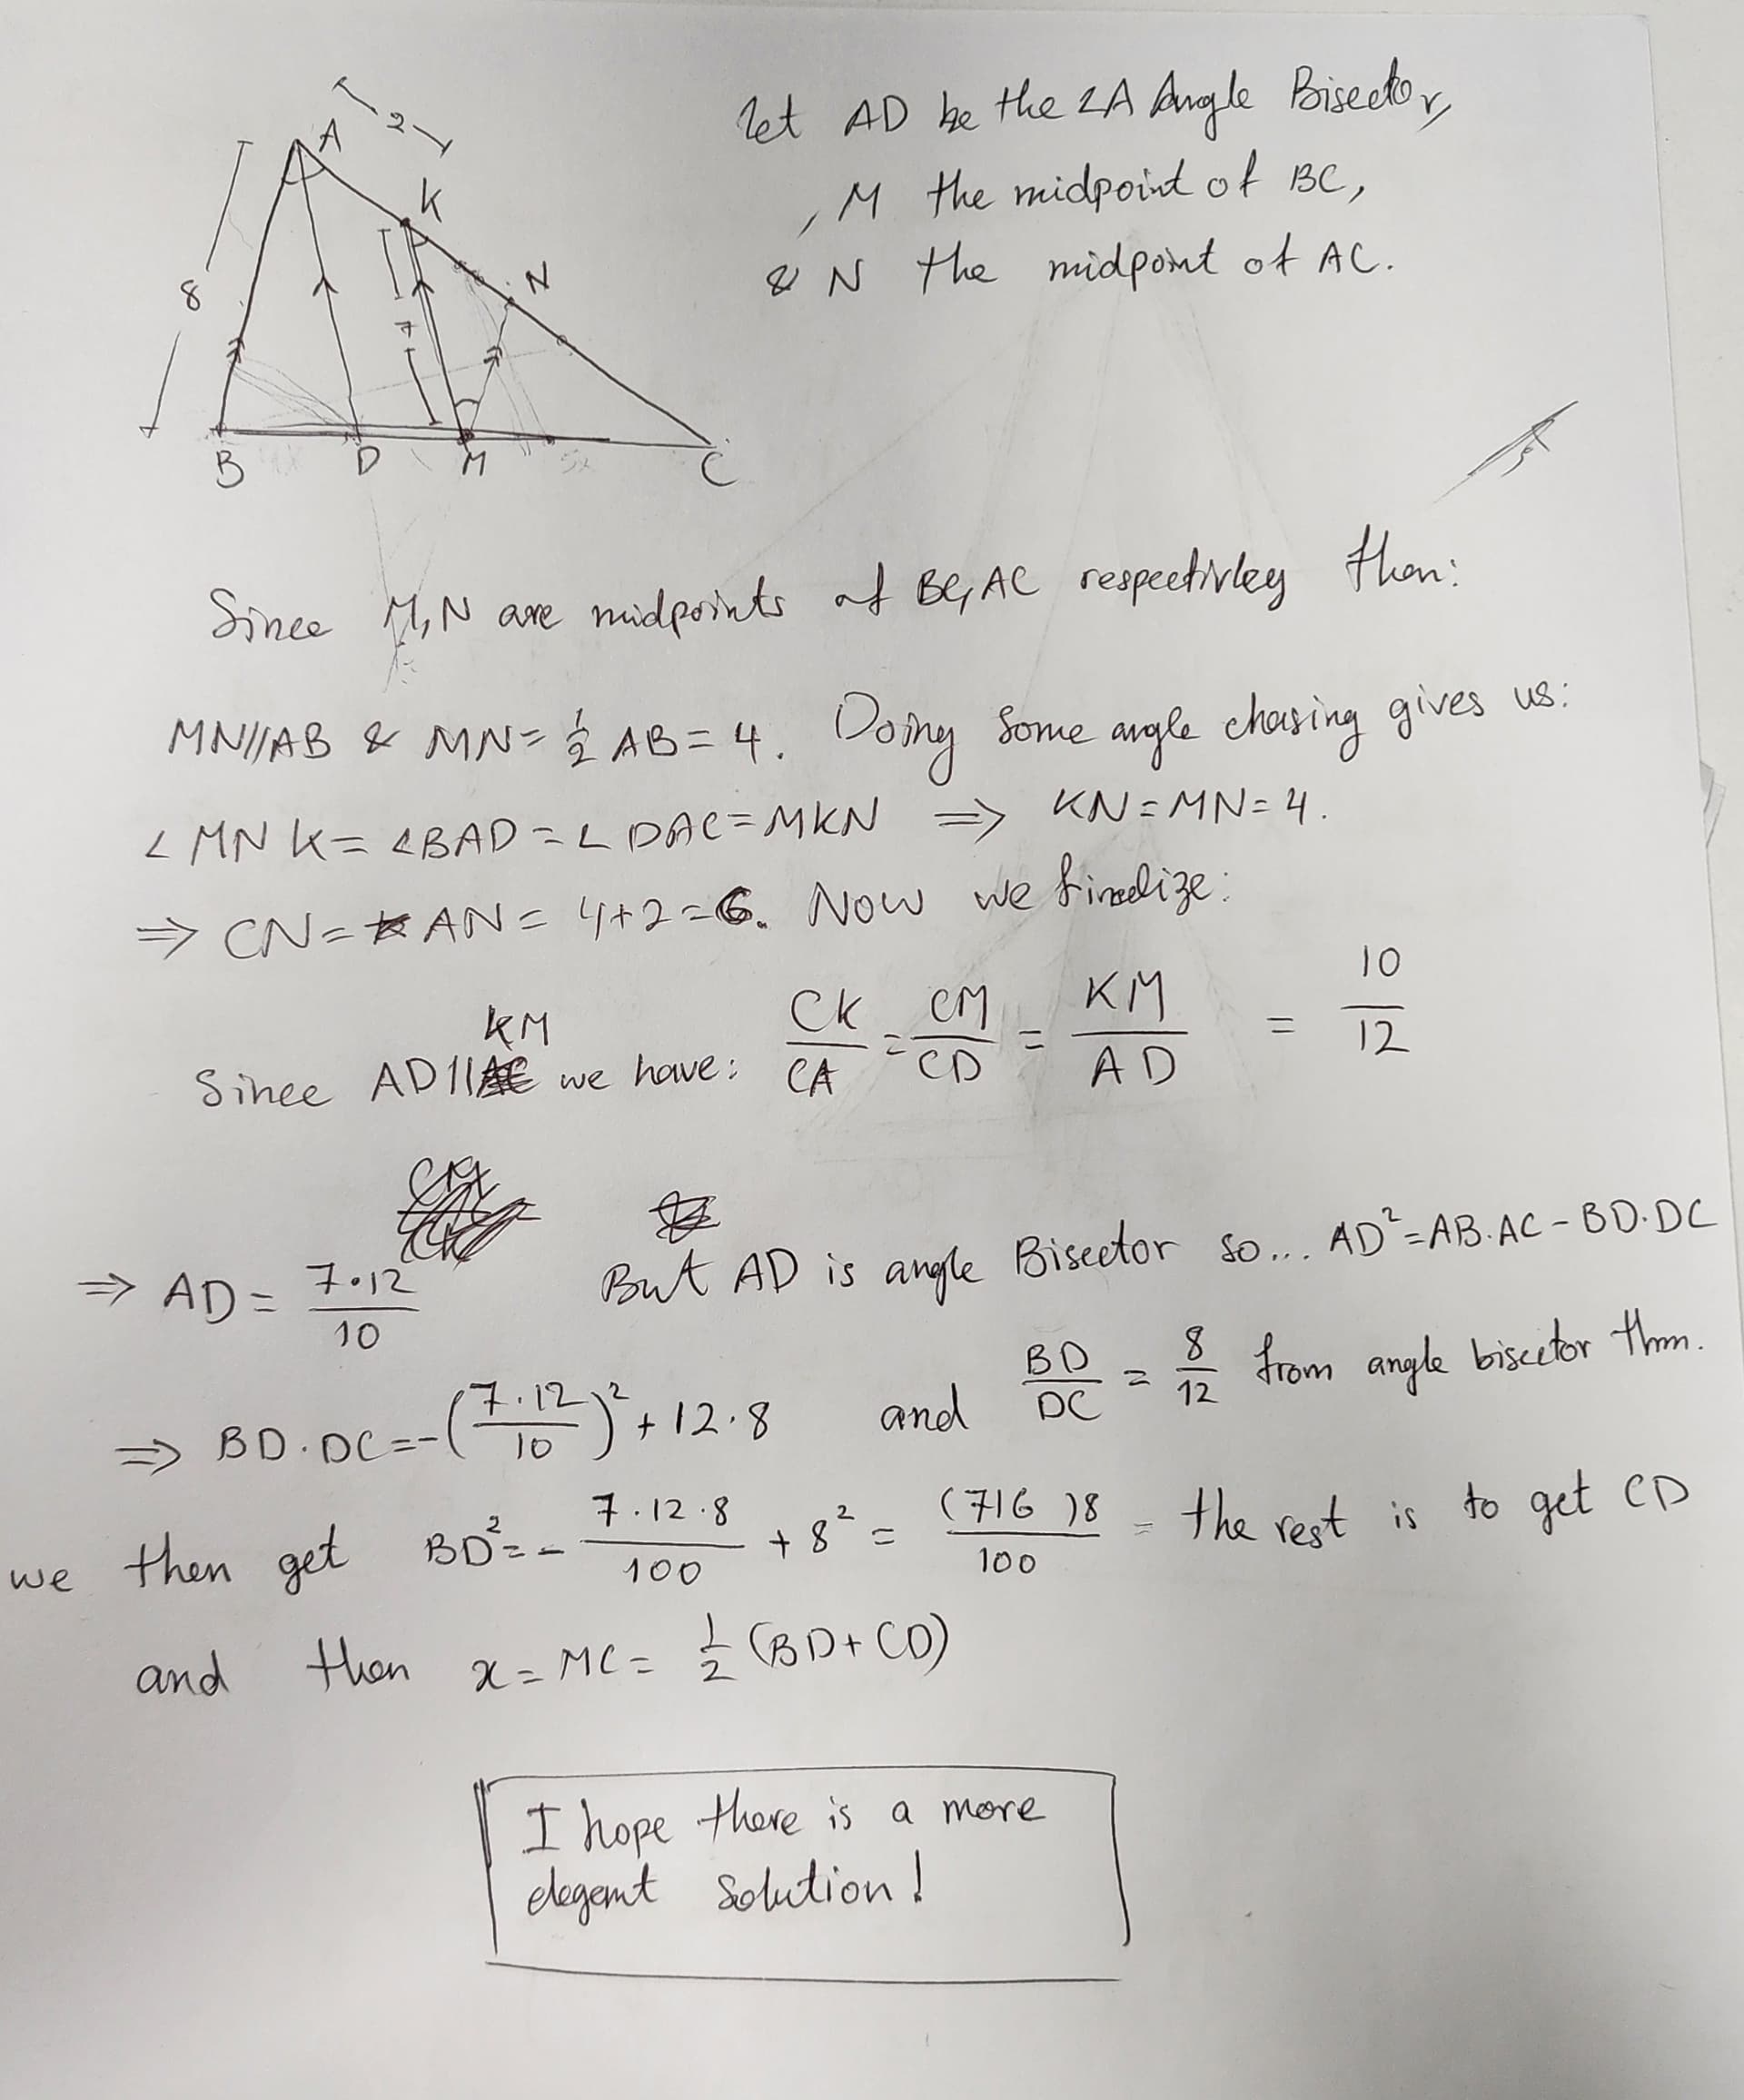 2
A
K
8
N
7
B D M C
let AD be the ∠A Angle Bisector,
, M the midpoint of BC,
& N the midpoint of AC.
Since M,N are midpoints of BC,AC respectivley then:
MN//AB & MN = 1/2 AB = 4. Doing some angle chasing gives us:
∠MNK = ∠BAD = ∠DAC = MKN ⇒ KN = MN = 4.
⇒ CN = AN = 4+2 = 6. Now we finalize:
Since AD // KM we have: CK/CA = CM/CD = KM/AD = 10/12
⇒ AD = 7·12/10 But AD is angle Bisector so... AD² = AB.AC - BD.DC
⇒ BD.DC = -(7.12/10)² + 12.8 and BD/DC = 8/12 from angle bisector thm.
we then get BD² = - 7.12.8/100 + 8² = (716)8/100 = the rest is to get CD
and then x = MC = 1/2 (BD + CD)
I hope there is a more
elegant solution!